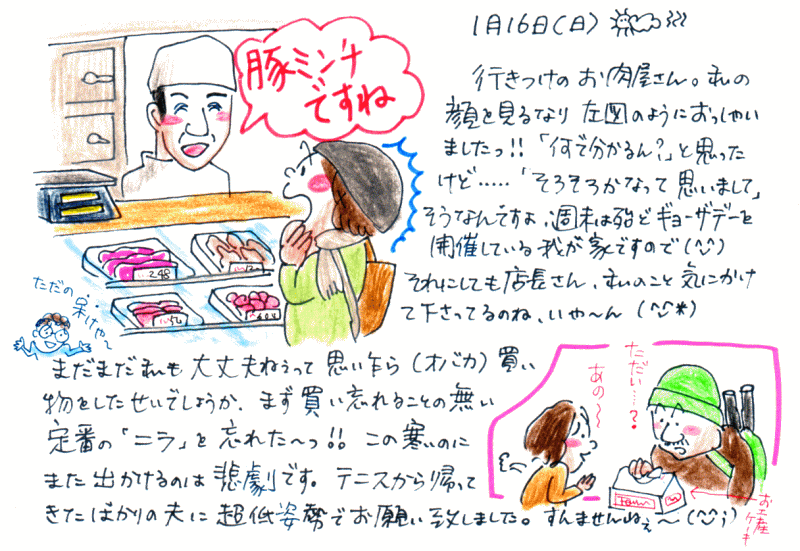 1月16日(日)
豚ミンチ
ですね
行きつけの お肉屋さん。私の
顔を見るなり 左図のようにおっしゃい
ましたっ!!「何で分かるん?」と思った
けど.....「そろそろかなって思いまして」
そうなんですよ、週末は殆どギョーザデーを
開催している我が家ですので(^◡^)
それにしても店長さん、私のこと気にかけ
て下さってるのね、いや〜ん (^◡^*)
ただの
客けゃ〜
まだまだ私も大丈夫ねぇって思い乍ら(オバカ)買い
物をしたせいでしょうか、まず買い忘れることの無い
定番の「ニラ」を忘れた〜っ!! この寒いのに
また出かけるのは悲劇です。テニスから帰って
きたばかりの夫に超低姿勢でお願い致しました。すんませんねぇ〜(^◡^;)
ただい...?
あの〜
お土産
ケーキ
248